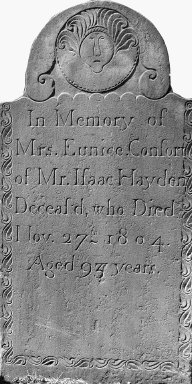 In Memory of
Mrs. Eunice Consort
of Mr. Isaac Hayden
Deceas'd, who Died
Nov. 27th 1804.
Aged 97 years.